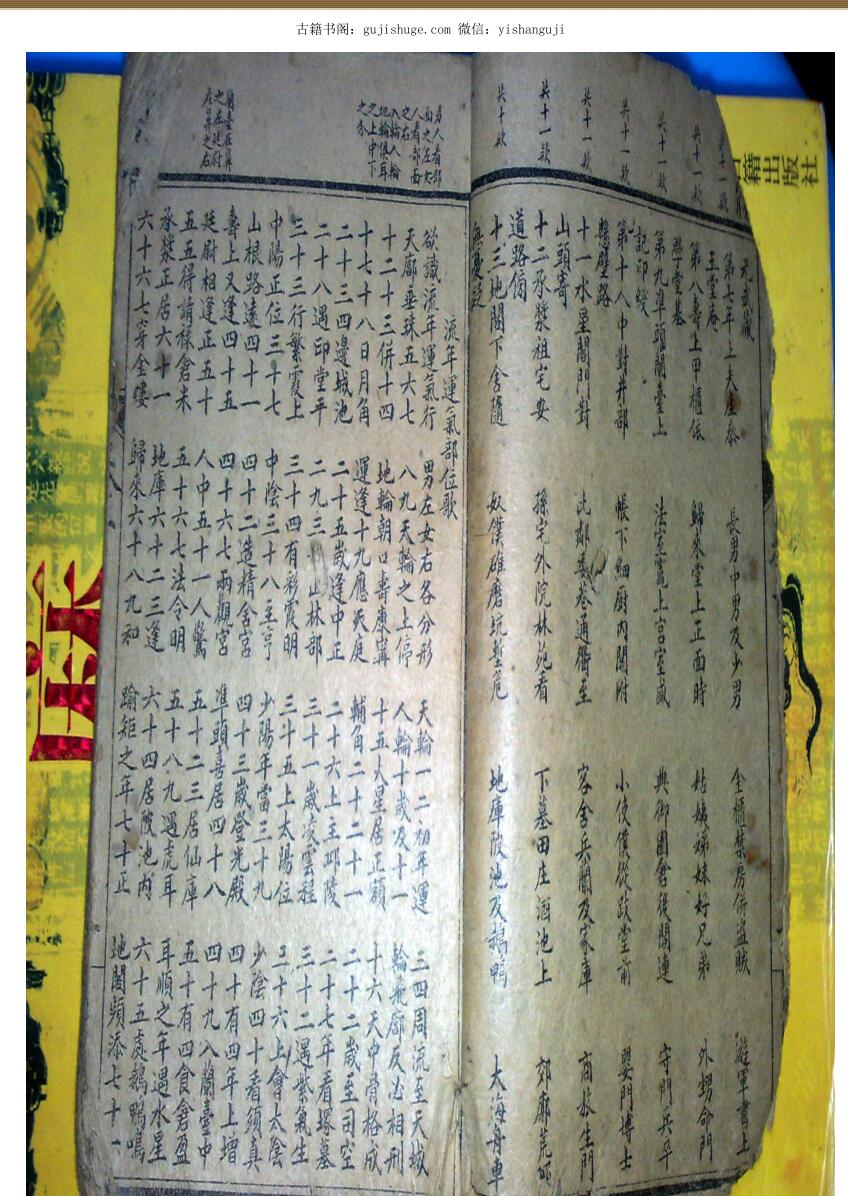 古籍书阁: gujishuge.com 微信: yishanguji
籍出版社
共十一款
共十一款
共十一款
共十一款
共十一款
共十款
元武藏
第七年上 長男中男及少男 金櫃禁房併盜賊 遊軍書上
玉堂庵
第八壽上甲櫃依 歸來堂上正面時 姑姨娣妹好兄弟 外甥命門
學堂基
第九準頭蘭臺上 竈上宮室盛 典御園倉後閣連 守門兵卒
記印綬
第十人中對井部 帳下細厨內閣附 小使僕從跂堂前 嬰門博士
懸壁路
十一水星閣門對 比鄰委巷通衢至 客舍兵蘭及家庫 商旅生門
山頭寄
十二承漿祖宅安 孫宅外院林苑看 下墓田庄酒池上 郊廓荒邱
道路傍
十三地閣下舍隨 奴僕碓磨坑塹危 地庫陂池及鵝鴨 大海舟車
無憂疑
男人看部
面之左女
人看部面
之右
人輪人輪
地輪俱耳
之上中下
之分
蘭臺在鼻
之左廷尉
在鼻之右
流年運氣部位歌
欲識流年運氣行 男左女右各分形 天輪一二初年運 三四周流至天城
天廓垂珠五六七 八九天輪之上停 人輪十歲及十一 輪飛廓反必相刑
十二十三併十四 地輪朝口壽康寧 十五火星居正額 十六天中骨格成
十七十八日月角 運逢十九應天庭 輔角二十二十一 二十二歲至司空
二十三四邊城池 二十五歲逢中正 二十六上主邱陵 二十七年看塚墓
二十八遇印堂平 二九三 山林部 三十一歲凌雲程 三十二遇紫氣生
三十三行繁霞上 三十四有彩霞明 三十五上太陽位 三十六上會太陰
中陽正位三十七 中陰三十八至亨 少陽年當三十九 少陰四十看須真
山根路遠四十一 四十二造精舍宮 四十三歲登光殿 四十有四年上增
壽上又逢四十五 四十六七兩觀宮 準頭喜居四十八 四十九入蘭臺中
廷尉相逢正五十 人中五十一人驚 五十二三居仙庫 五十有四食倉盈
五五得請祿倉米 五十六七法令明 五十八九遇虎耳 耳順之年遇水星
承漿正居六十一 地庫六十二三逢 六十四居陂池內 六十五處鵝鴨鳴
六十六七穿金縷 歸來六十八九和 踰矩之年七十正 地閣頻添七十一